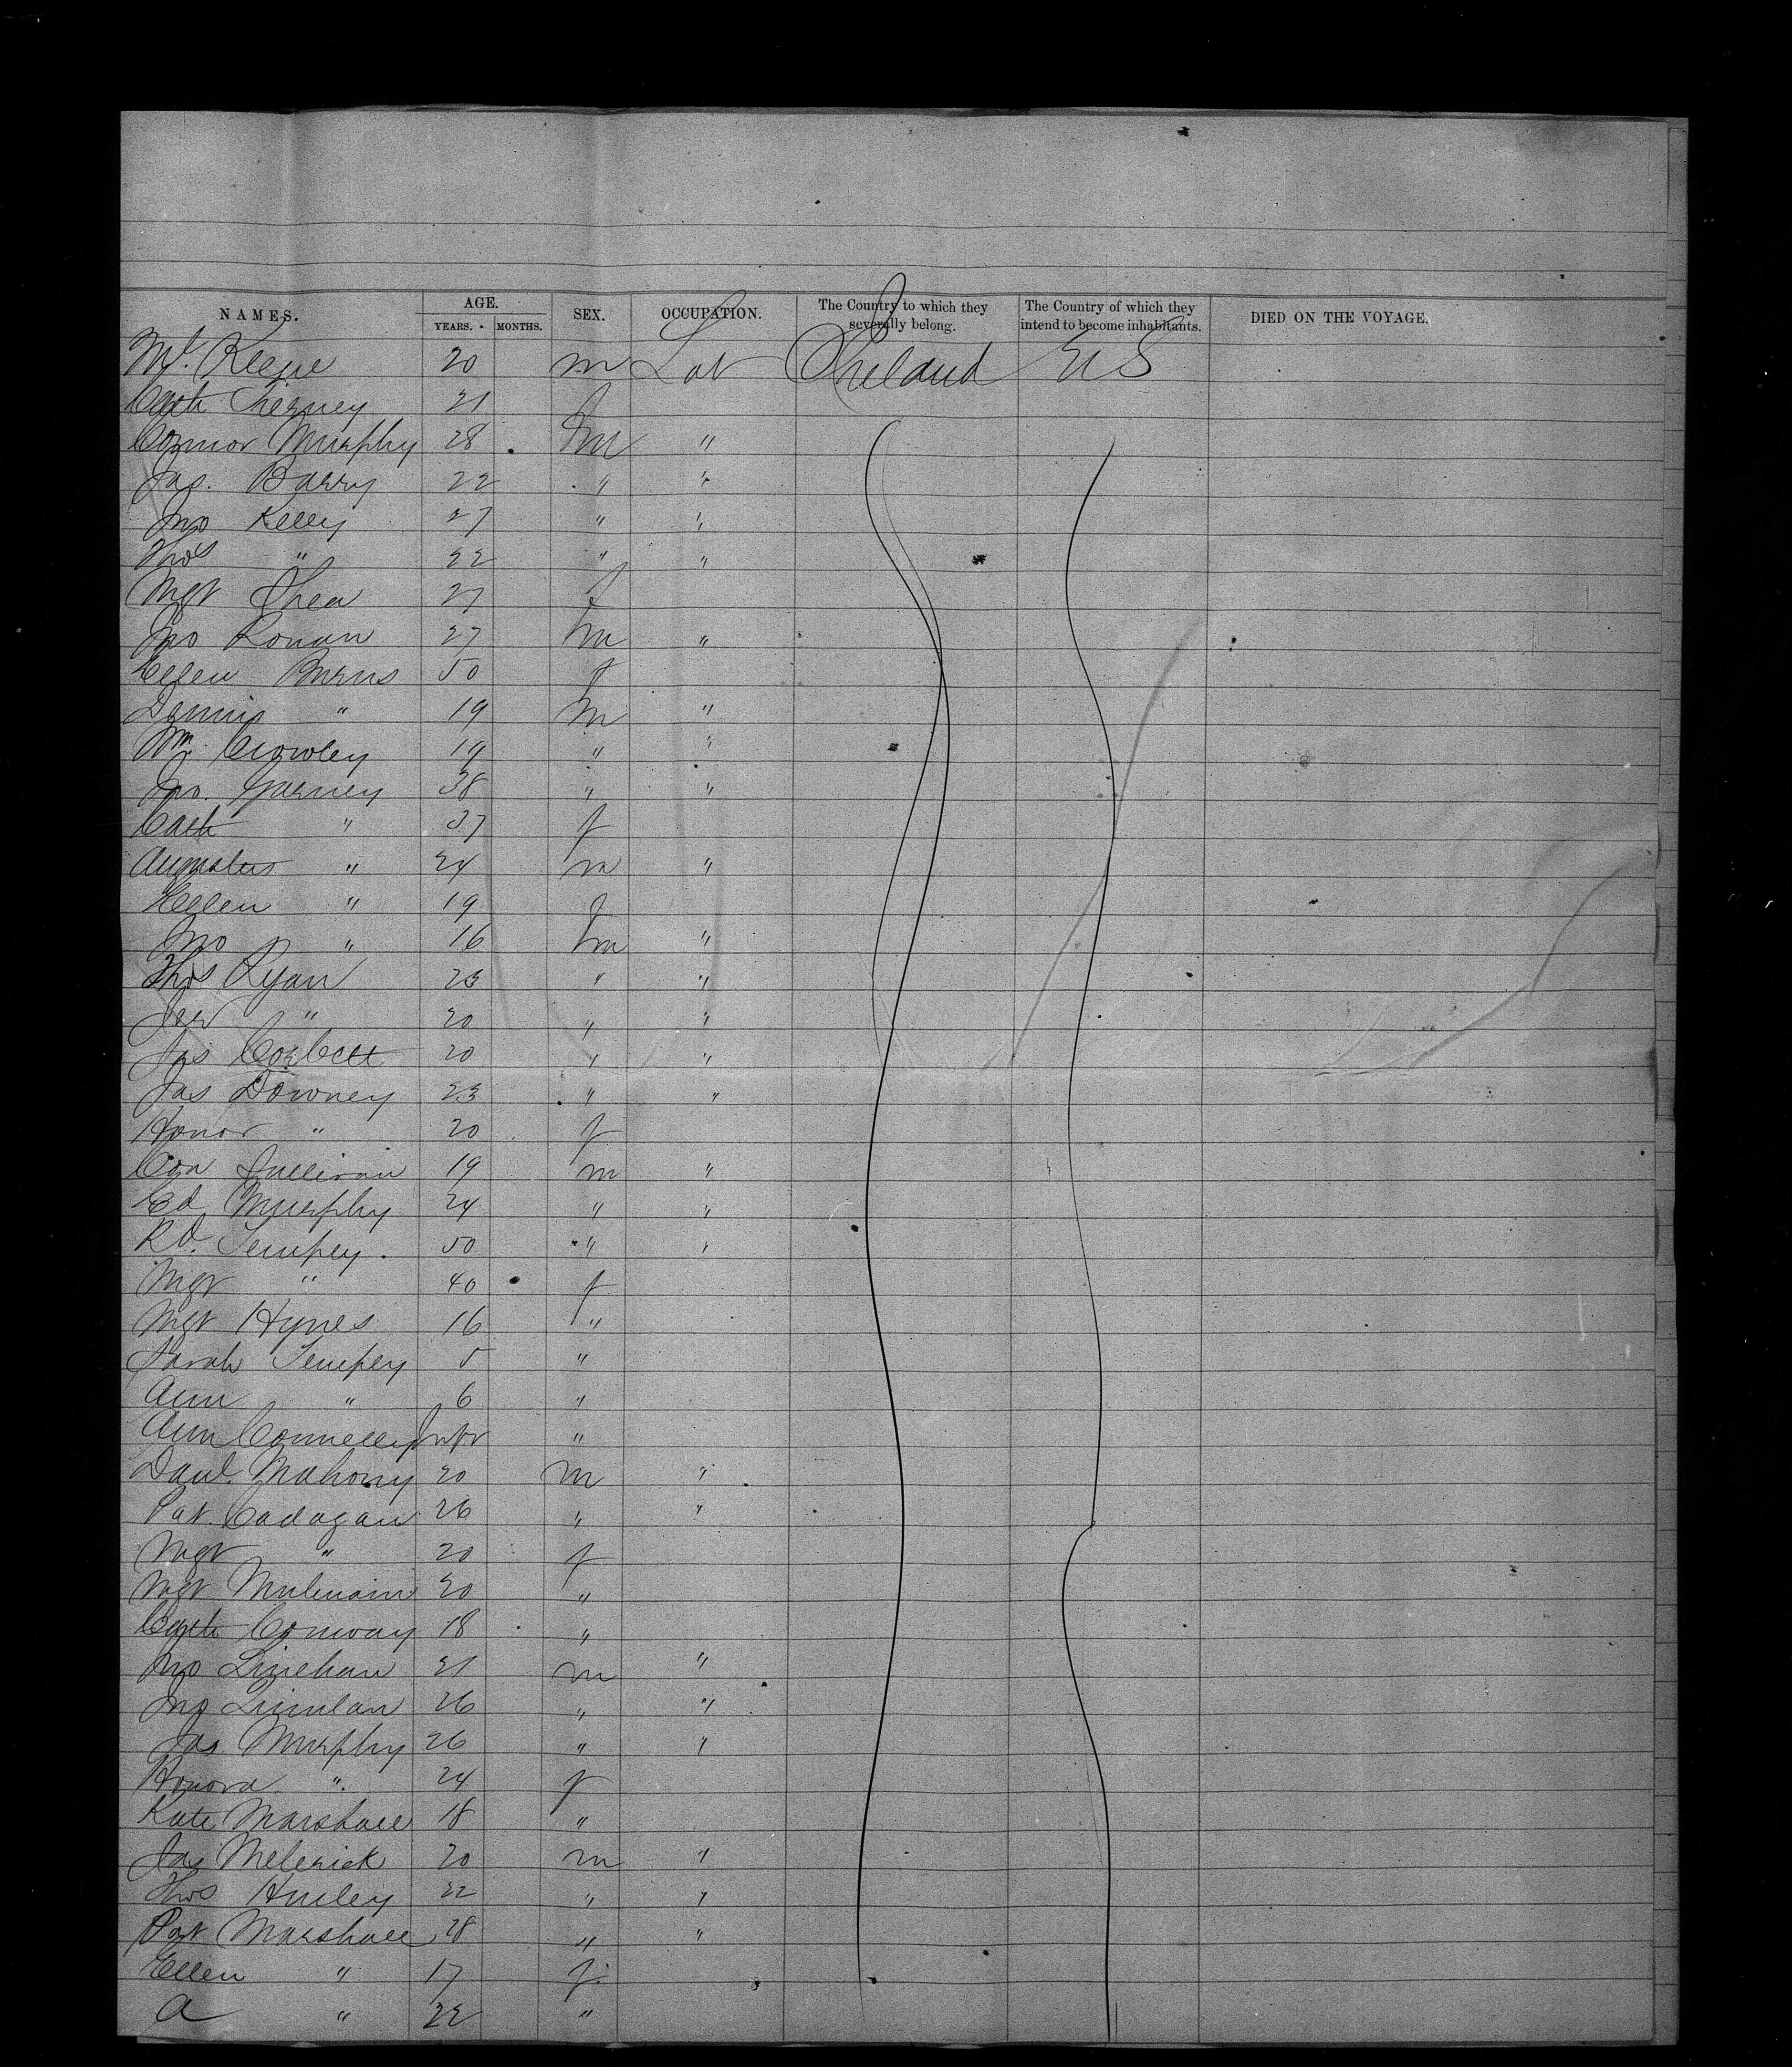 NAMES. AGE. SEX. OCCUPATION. The Country to which they severally belong. The Country of which they intend to become inhabitants. DIED ON THE VOYAGE.
YEARS. MONTHS.
Ml. Keefe 20 m Lab Ireland U S
Cath Tierney 21 f
Connor Murphy 28 m "
Jas. Barry 22 " "
Jno Kelly 27 " "
Thos " 22 " "
Mgt Shea 27 f
Jno Ronan 27 m "
Ellen Burns 50 f
Dennis " 19 m "
Wm. Crowley 19 " "
Jno. Garney 38 " "
Cath " 37 f
Augustus " 24 m "
Ellen " 19 f
Jno " 16 m "
Thos Ryan 23 " "
Jer " 20 " "
Jas Corbett 20 " "
Jas Downey 23 " "
Honor " 20 f
Con Sullivan 19 m "
Ed Murphy 24 " "
Rd. Tempey. 50 " "
Mgt " 40 f
Mgt Hynes 16 "
Sarah Tempey 5 "
Ann " 6 "
Ann Connelly Inft "
Danl. Mahony 20 m "
Pat Cadogan 26 " "
Mgt " 20 f
Mgt 20 "
Cath Conway 18 "
Jno Linehan 21 m "
Jno 26 " "
Jas Murphy 26 " "
Honora " 24 f
Kate Marshall 18 "
Jas 20 m "
Thos Hurley 22 " "
Pat Marshall 28 " "
Ellen " 17 f
A " 22 "